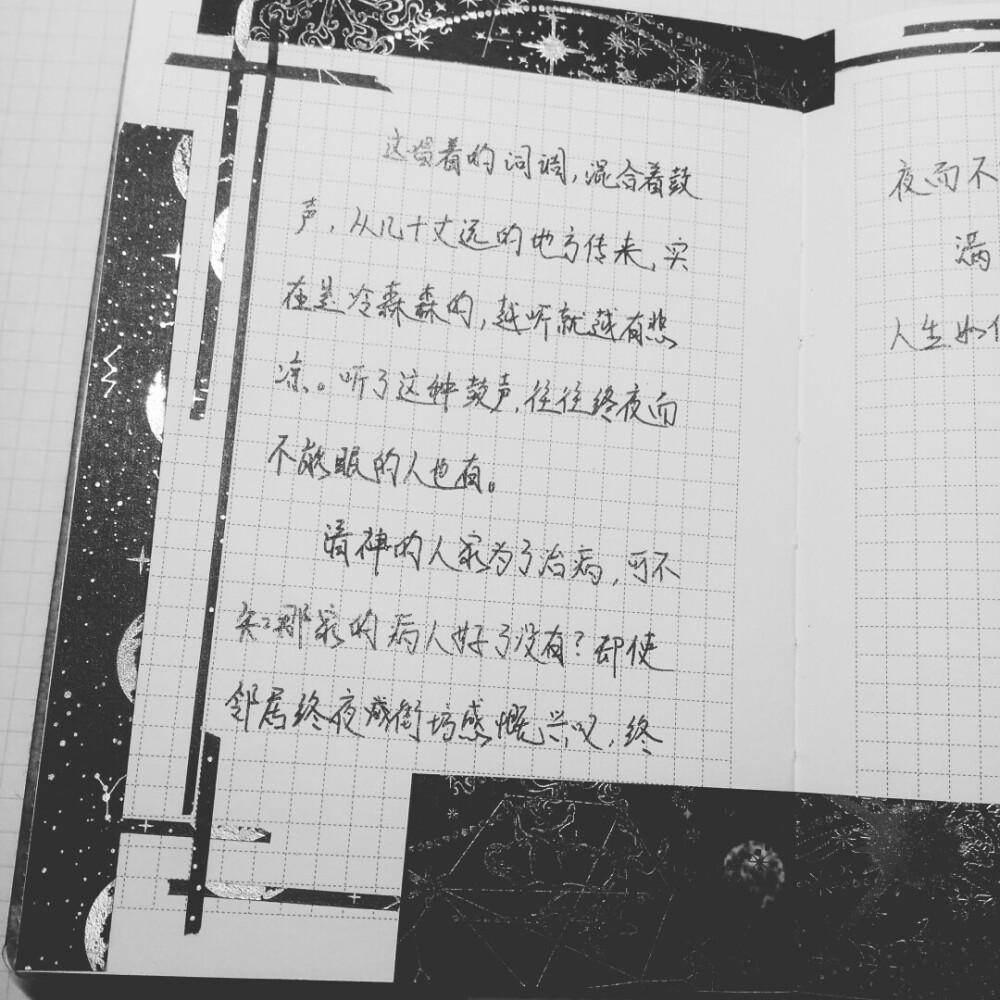 这唱着的词调，混合着鼓
声，从几十丈远的地方传来，实
在是冷森森的，越听就越有悲
凉。听了这种鼓声，往往终夜而
不能眠的人也有。
请神的人家为了治病，可不
知那家的病人好了没有？却使
邻居终夜街坊感慨兴叹，终
夜而不
满
人生如